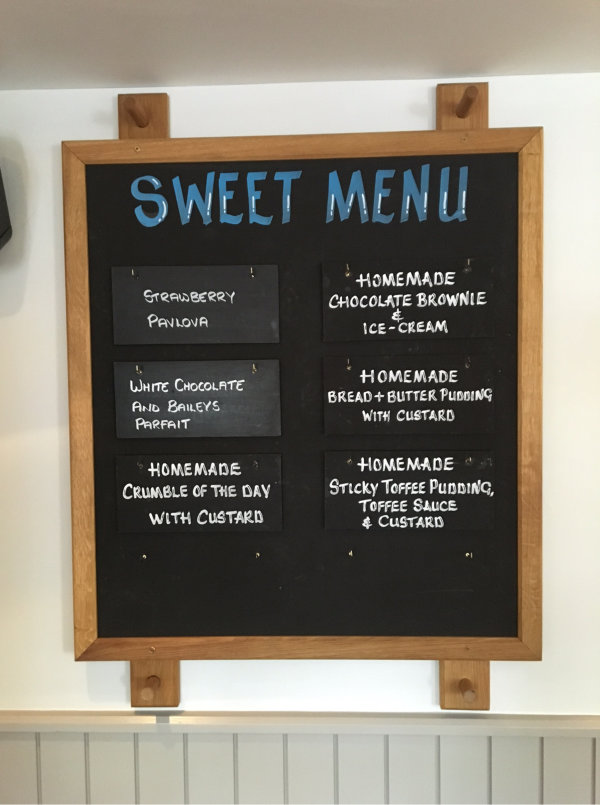 SWEET MENU
STRAWBERRY
PAVLOVA
WHITE CHOCOLATE
AND BAILEYS
PARFAIT
HOMEMADE
CRUMBLE OF THE DAY
WITH CUSTARD
HOMEMADE
CHOCOLATE BROWNIE
&
ICE-CREAM
HOMEMADE
BREAD + BUTTER PUDDING
WITH CUSTARD
HOMEMADE
STICKY TOFFEE PUDDING,
TOFFEE SAUCE
& CUSTARD